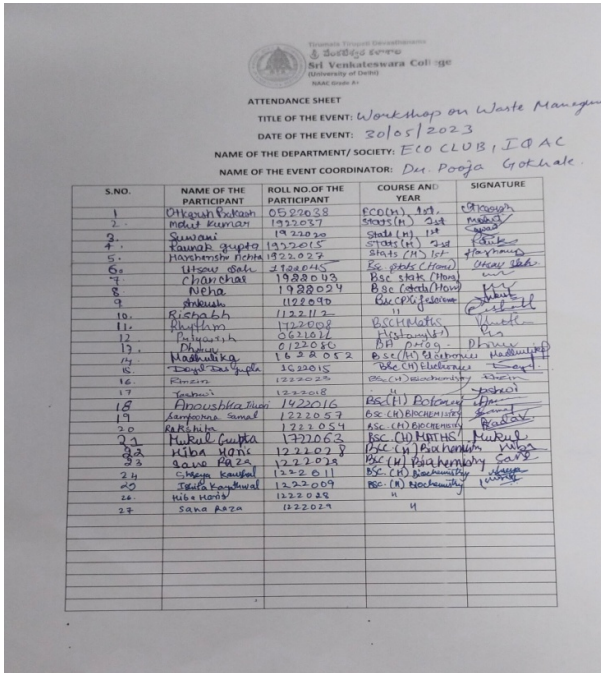 Tirumala Tirupati Devasthanams
శ్రీ వేంకటేశ్వర కళాశాల
Sri Venkateswara College
(University of Delhi)
NAAC Grade A+
ATTENDANCE SHEET
TITLE OF THE EVENT: Workshop on Waste
DATE OF THE EVENT: 30/05/2023
NAME OF THE DEPARTMENT/ SOCIETY: ECO CLUB, IQAC
NAME OF THE EVENT COORDINATOR: Dr. Pooja Gokhale.
S.NO. NAME OF THE PARTICIPANT ROLL NO.OF THE PARTICIPANT COURSE AND YEAR SIGNATURE
1 Utkarsh Prakash 0522038 ECO(H), 1st. Utkarsh
2. Mohit Kumar 1922037 Stats(H), 1st Mohit
3. Suwani 1922020 Stats(H), 1st
4. Raunak Gupta 1922015 Stats(H) 1st
5. Harshanshi Mehta 1922027 Stats (H) 1st
6. Utsav Sah 1922045 Bsc Stats (Hons) Utsav Sah
7 Chanchal 1922043 BSC stats (Hons)
8 Neha 1922024 BSc (stats/Hons)
9 Ankush 1122090
10. Rishabh 1122112 "
11. Rhythm 1722008 BSCH Maths
12 Priyansh 0621022
13. Dhruv 0122086 BA prog. Dhruv
14. Madhulika 1622052 BSc(H) Electronics
15. Deyd Das Gupta 1622015 BSc (H) Electronics
16. 1222023 BSc (H) Biochemistry
17 Yashvi 1222018 " Yashvi
18 Anoushka 1422016 BSc(H) Botany
19 Sampoorna Samal 1222057 BSC (H) BIOCHEMISTRY
20 Rakshita 1222054 BSC (H) BIOCHEMISTRY
21 Mukul Gupta 1722063 BSC (H) MATHS Mukul
22 Hiba Haris 1222028 BSC (H) Biochemistry Hiba
23 Sana Raza 1222029 BSC (H) Biochemistry Sana
24 Kaushal 1222011 BSC. (H) Biochemistry
25 1222009 BSC. (H) Biochemistry
26. Hiba Haris 1222028 "
27 Sana Raza 1222029 "